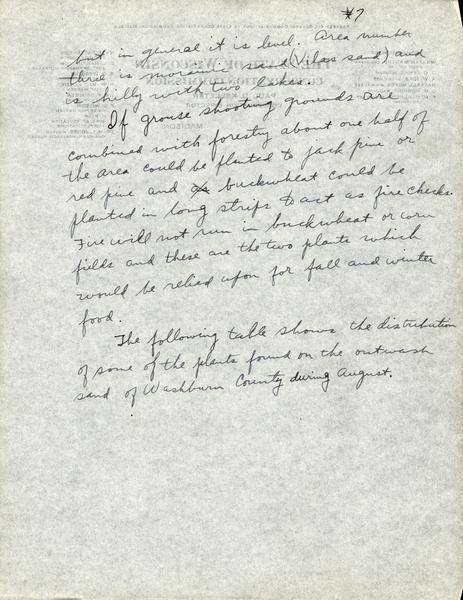 #7
but in general it is level. Area number
three is morainic sand (Vilas sand) and
is hilly with two lakes.
If grouse shooting grounds are
combined with forestry about one half of
the area could be planted to jack pine or
red pine and buckwheat could be
planted in long strips to act as fire checks.
Fire will not run in buckwheat or corn
fields and these are the two plants which
would be relied upon for fall and winter
food.
The following table shows the distribution
of some of the plants found on the outwash
sand of Washburn County during August.